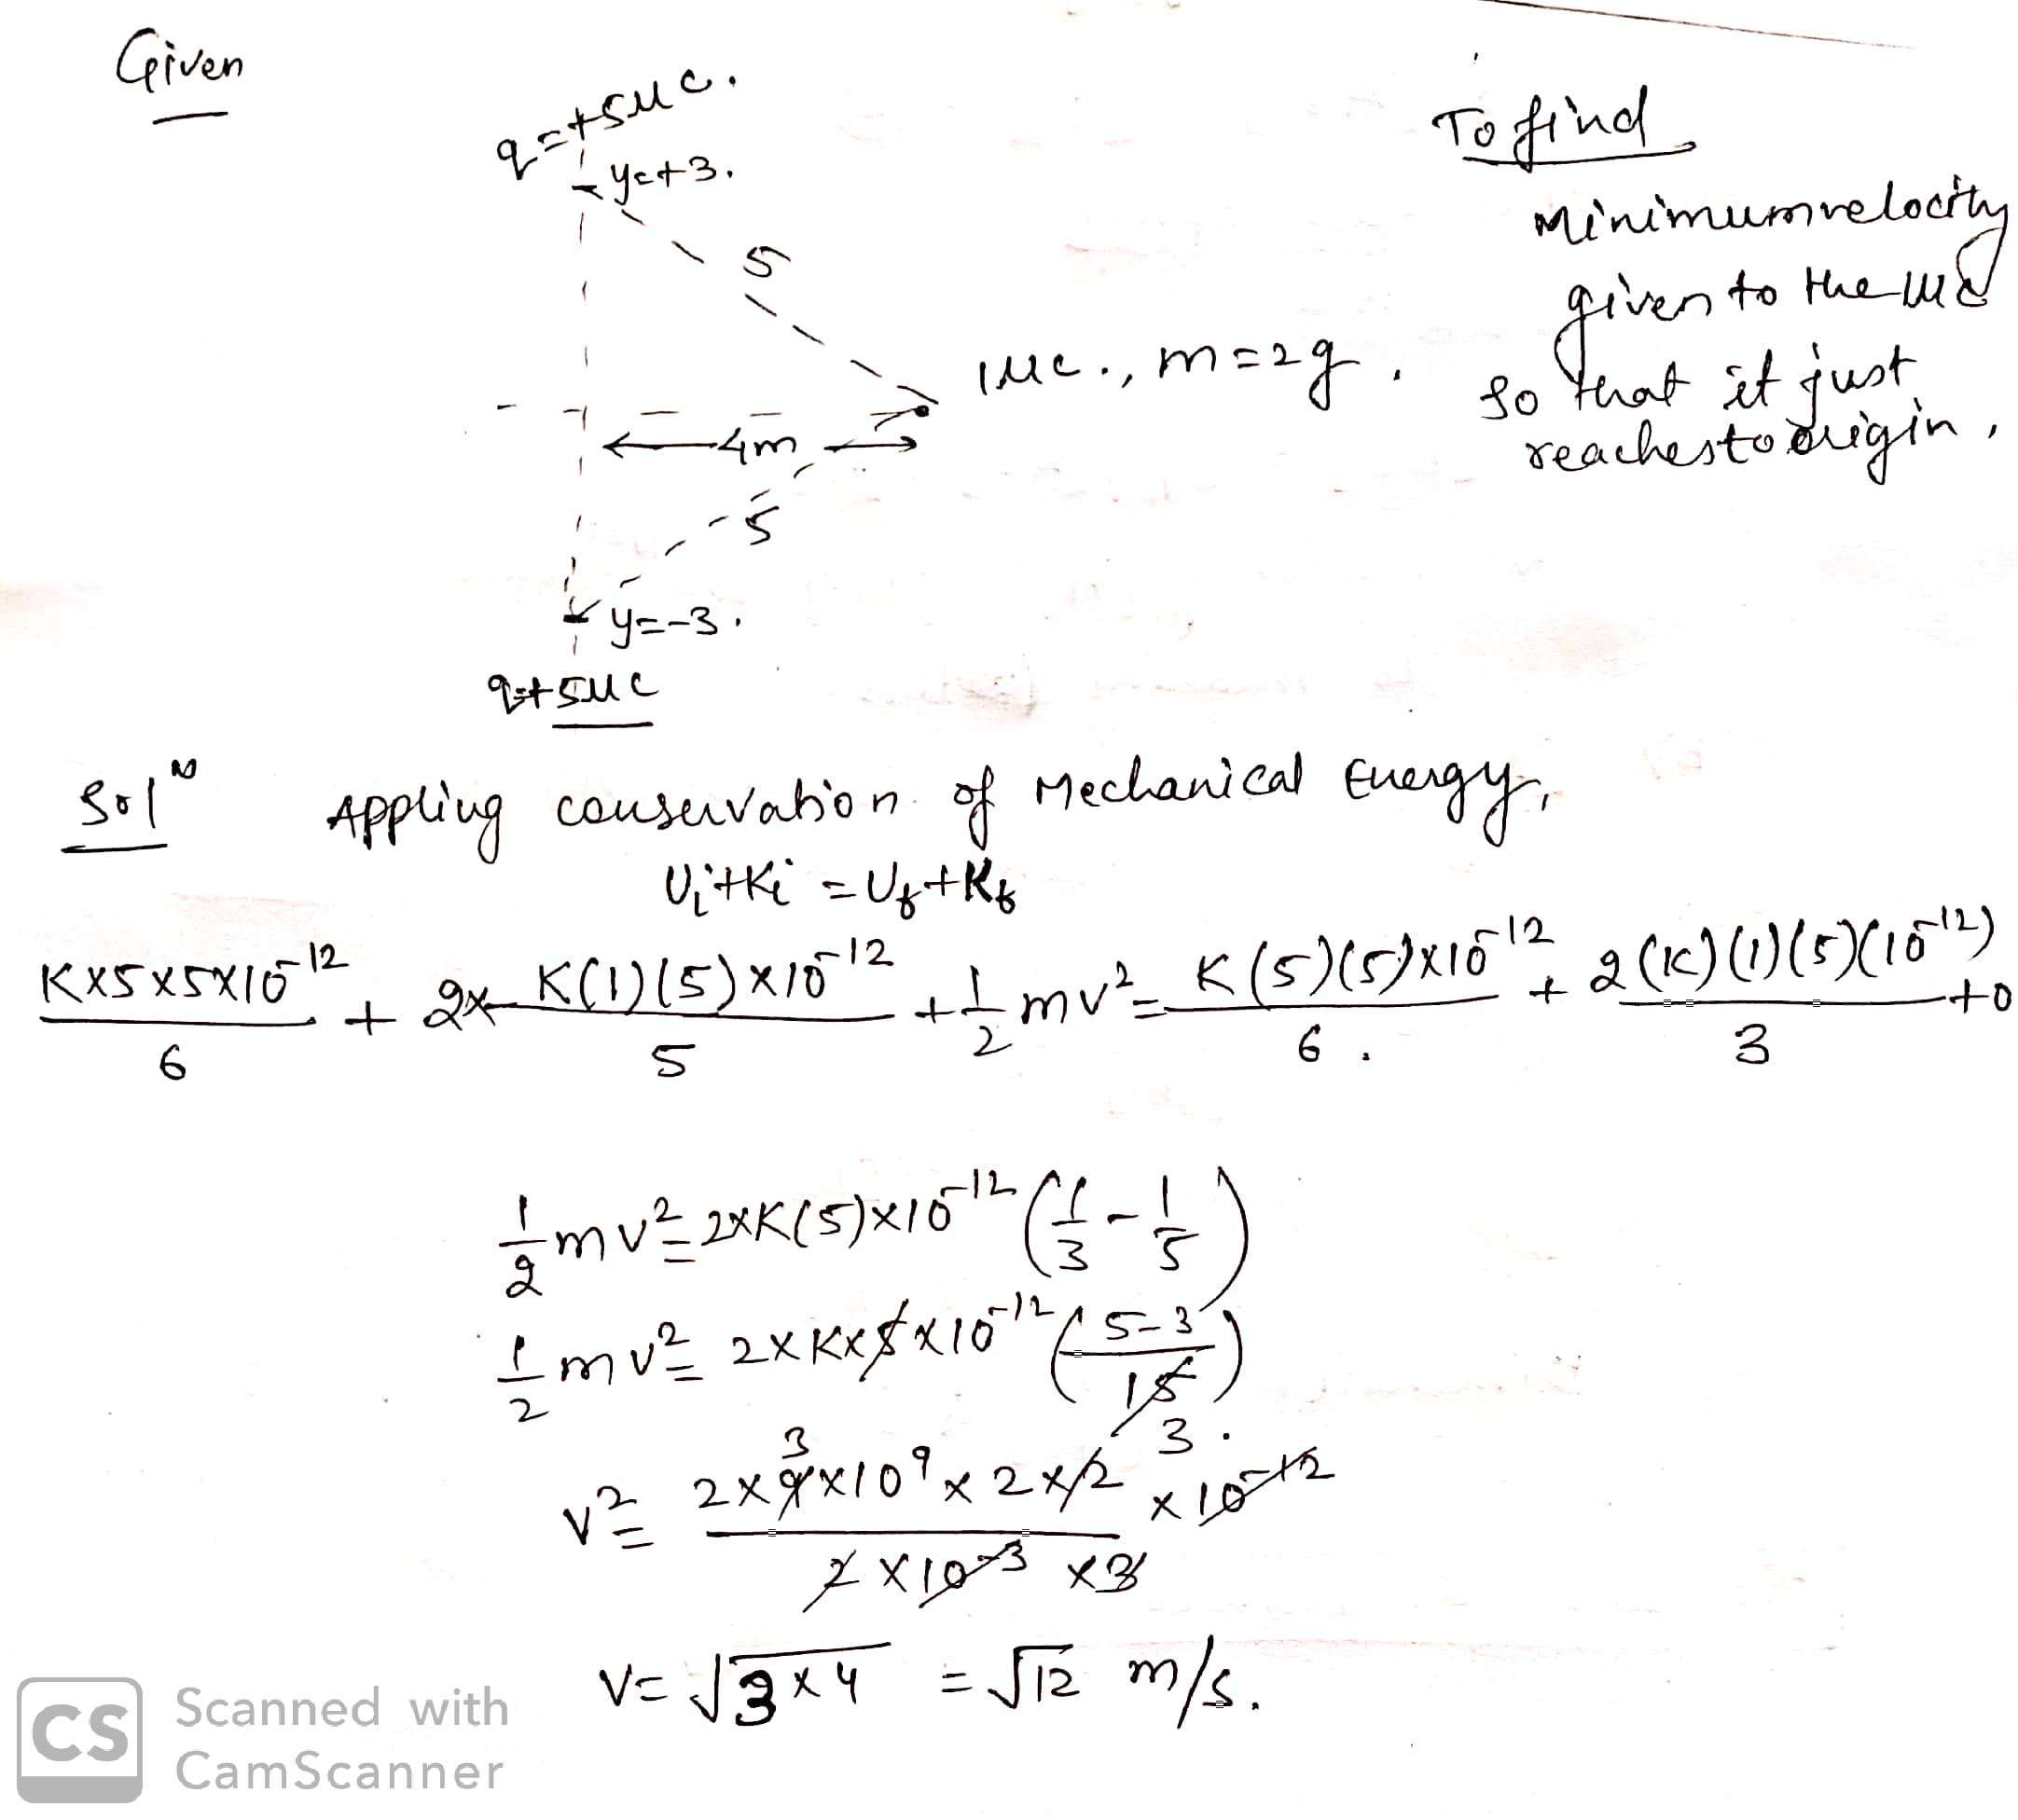 Given
q=+5μc.
y=+3.
To find
Minimum velocity
given to the 1μc
so that it just
reaches to origin,
5
1μc., m=2g.
4m
5
y=-3.
q=+5μc
Solⁿ Appling conservation of Mechanical Energy,
Ui+Ki = Uf+Kf
K×5×5×10⁻¹²/6 + 2× K(1)(5)×10⁻¹²/5 + 1/2 mv² = K(5)(5)×10⁻¹²/6. + 2(K)(1)(5)(10⁻¹²)/3 +0
1/2 mv² = 2×K(5)×10⁻¹² (1/3 - 1/5)
1/2 mv² = 2×K×5×10⁻¹² (5-3/15)
3.
3
v² = 2×9×10⁹×2×2/2×10⁻³×3 ×10⁻¹²
v= √3×4 = √12 m/s.
CS Scanned with
CamScanner